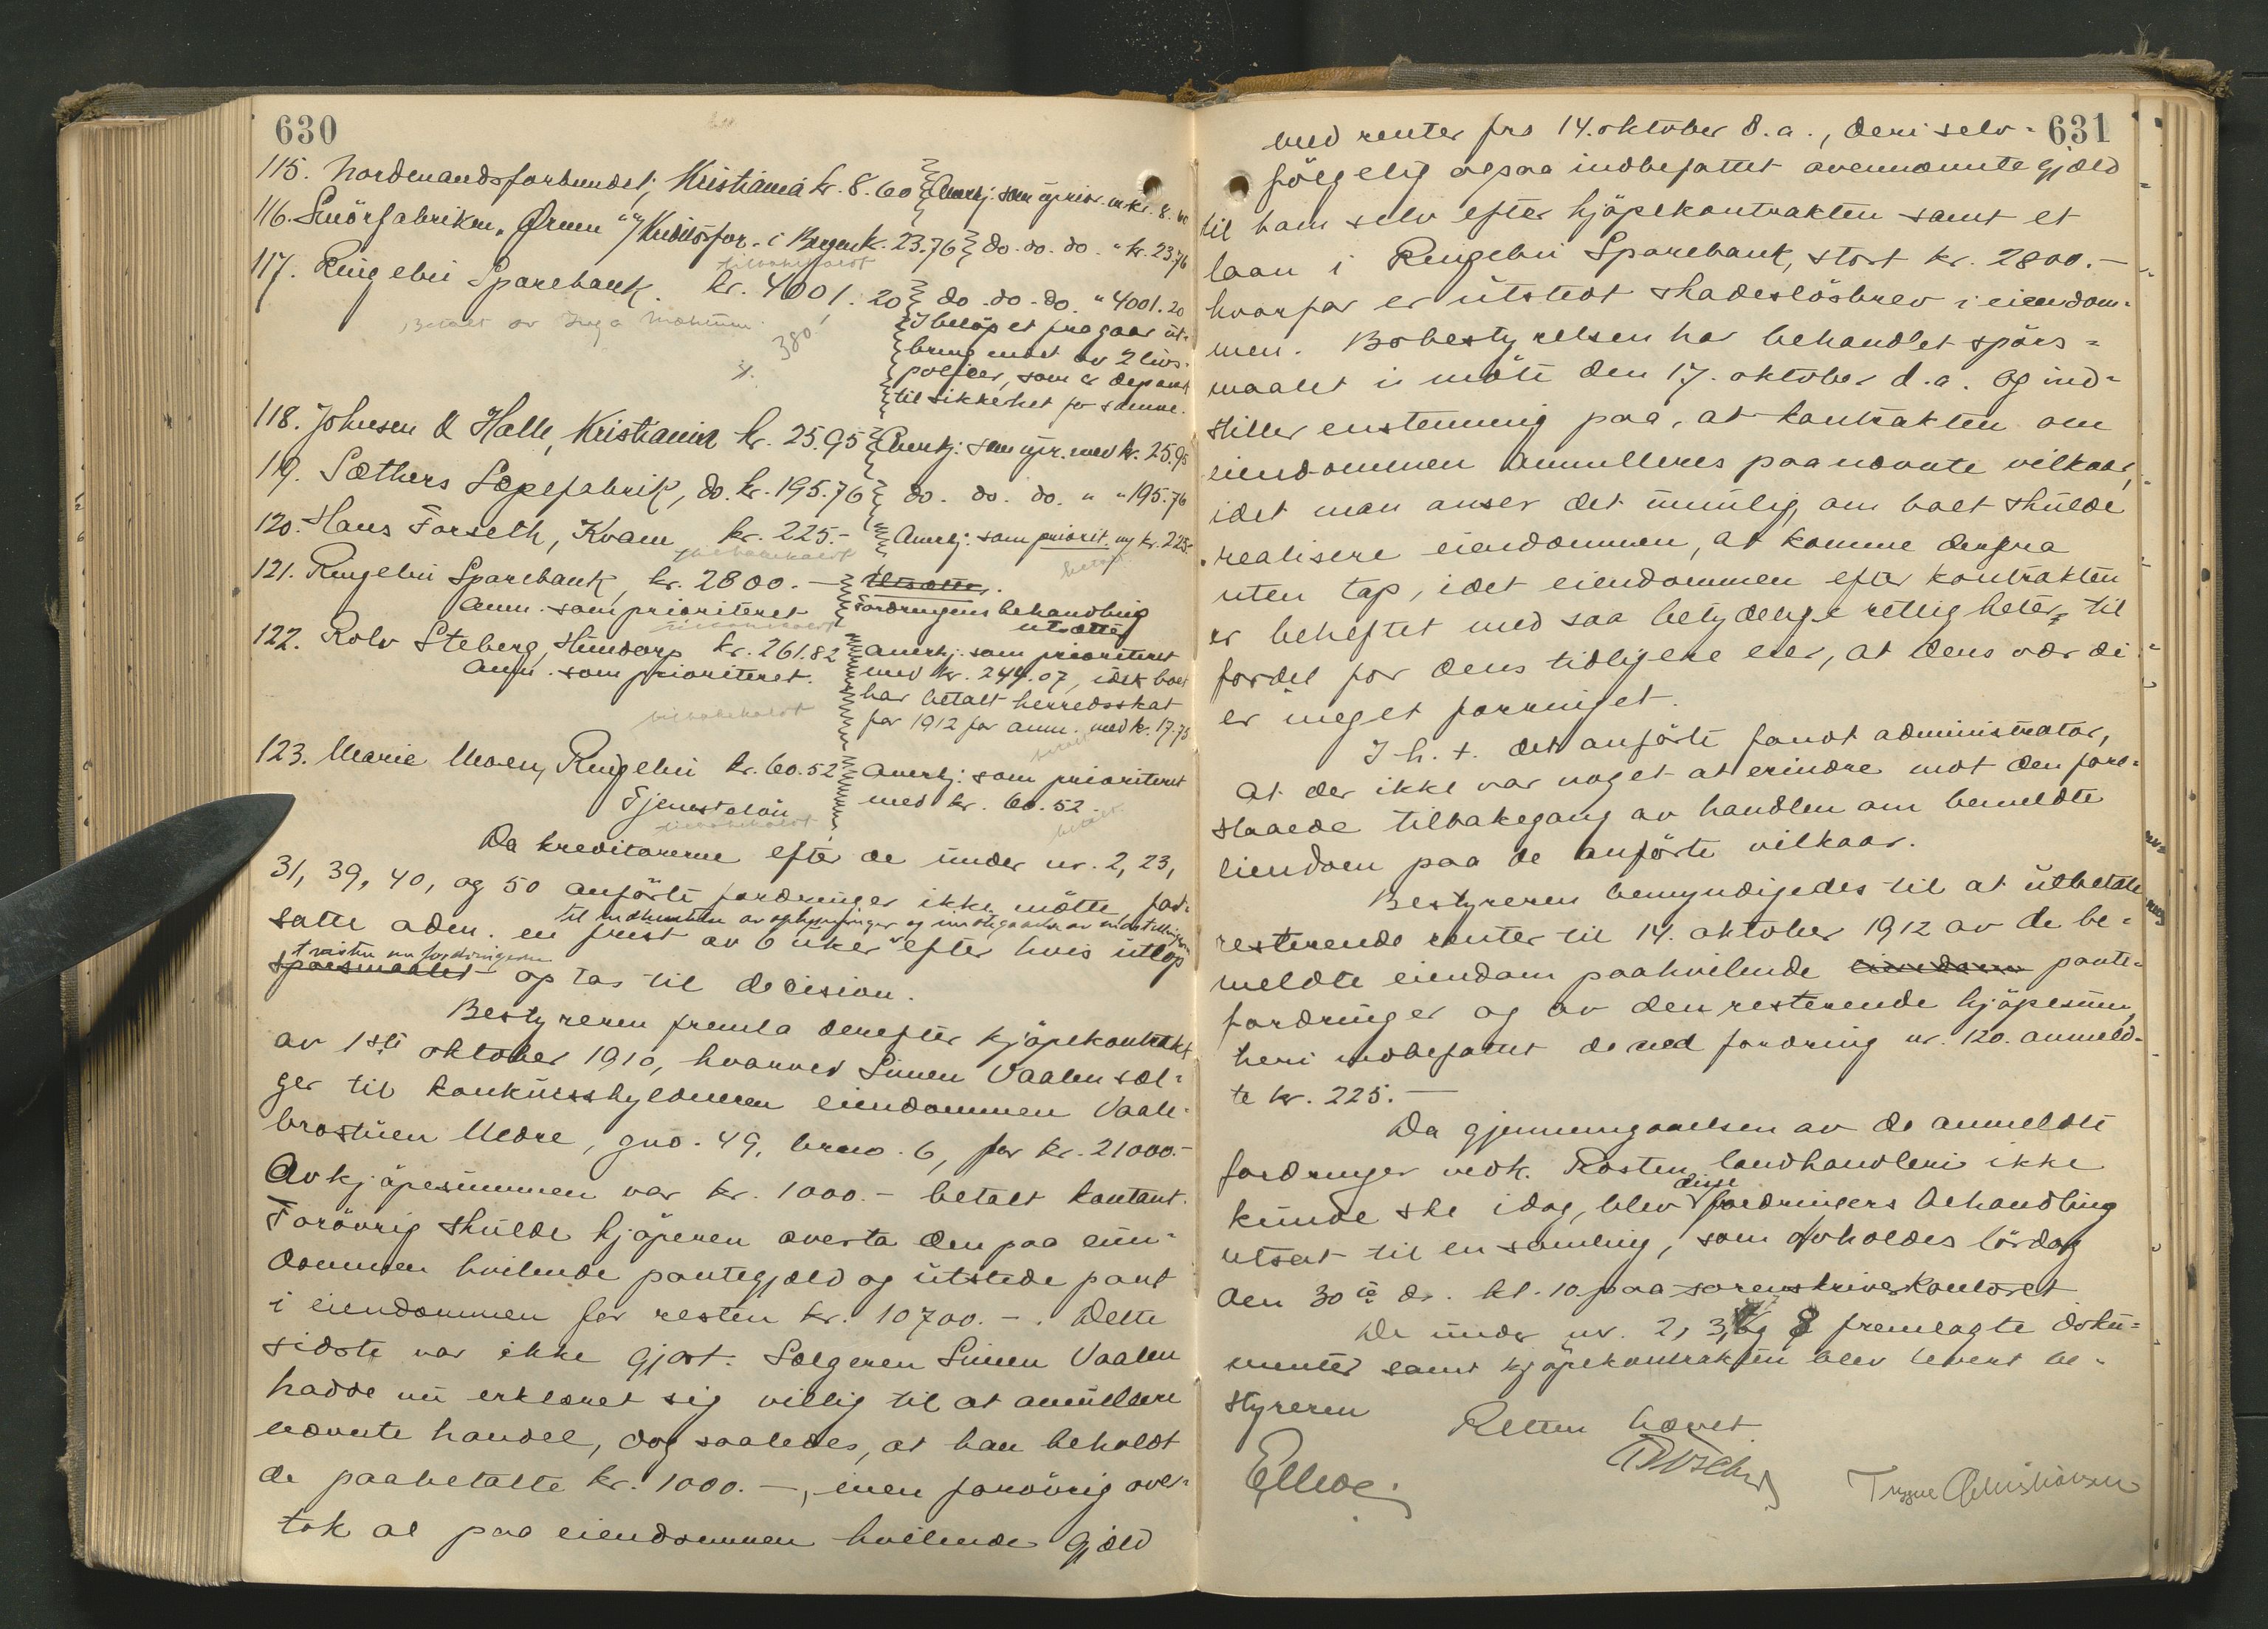 630
115. Nordmandsforbundet, Kristiania kr. 8.60 Anerkj: som uprior. m. kr. 8.60
116. Smörfabriken "Ørnen" v/ Kreditorfor. i Bergen k. 23.76 do. do. do. " kr. 23.76
tilbakeholdt
117. Ringebu Sparebank. kr. 4001.20 do. do. do. " 4001.20
Betalt av Inga
380
I beløpet fragaar ut-
bringendet av 2 livs-
policer, som er depon
til sikkerhet for samme.
118. Johnsen & Halle, Kristiania kr. 25.95 Anerkj: som upr. med kr. 25.95
119. Sæthers Sæpefabrik, do. kr. 195.76 do. do. do. " " 195.76
120. Hans Forseth, Kvam kr. 225.- Anerkj: som priorit. m/ kr. 225.-
tilbakeholdt betalt
121. Ringebu Sparebank, kr. 2800.— Utsættes.
Anm. som prioriteret Fordringens behandling
utsættes
tilbakeholdt
122. Rolv Steberg, Hundorp kr. 261.82 Anerkj: som prioriteret
Anm. som prioriteret. med kr. 244.07, idet boet
har betalt herredsskat
tilbakeholdt for 1912 for anm. med k. 17.75
betalt
123. Marie Moen, Ringebu kr. 60.52 Anerkj: som prioriteret
Tjenestelön med kr. 60.52.
tilbakeholdt betalt
Da kreditorerne efter de under nr. 2, 23,
31, 39, 40, og 50 anförte fordringer ikke mötte fast-
til indhentelse av oplysninger og imötegaaelse av indstillingen
satte adm. en frist av 6 uker efter hvis utlöp
tvisten om fordringerne
spörsmaalet op tas til decision.
Bestyreren fremla derefter kjöpekontrakt
av 1ste oktober 1910, hvorved Simen Vaalen sæl-
ger til konkursskyldneren eiendommen Vaale-
brostuen Nedre, gno. 49, brno. 6, for kr. 21000.-
Av kjöpesummen var kr. 1000.- betalt kontant.
Forövrig skulde kjöperen overta den paa eien-
dommen hvilende pantegjæld og utstede pant
i eiendommen for resten kr. 10700.-. Dette
sidste var ikke gjort. Sælgeren Simen Vaalen
hadde nu erklæret sig villig til at annullere
nævnte handel, dog saaledes, at han beholdt
de paabetalte kr. 1000.—, men forövrig over-
tok al paa eiendommen hvilende gjæld
631
med renter fra 14. oktober d.a., deri selv-
fölgelig ogsaa indbefattet ovennævnte gjæld
til ham selv efter kjöpekontrakten samt et
laan i Ringebu Sparebank, stort kr. 2800.—
hvorfor er utstedt skadeslösbrev i eiendom-
men. Bobestyrelsen har behandlet spörs-
maalet i möte den 17. oktober d.a. og ind-
stiller enstemmig paa, at kontrakten om
eiendommen annulleres paa nævnte vilkaar,
idet man anser det umulig, om boet skulde
realisere eiendommen, at komme derfra
uten tap, idet eiendommen efter kontrakten
er beheftet med saa betydelige rettigheter til
fordel for dens tidligere eier, at dens værdi
er meget forringet.
I h. t. det anförte fandt administrator,
at der ikke var noget at erindre mot den fore-
slaaede tilbakegang av handlen om bemeldte
eiendom paa de anförte vilkaar.
Bestyreren bemyndigedes til at utbetale
resterende renter til 14. oktober 1912 av de be-
meldte eiendom paahvilende eiendom pante-
fordringer og av den resterende kjöpesum,
heri indbefattet de ved fordring nr. 120. anmeld-
te kr. 225.—
Da gjennemgaaelsen av de anmeldte
fordringer vedk. Rosten landhandleri ikke
disse
kunde ske idag, blev fordringers behandling
utsat til en samling, som avholdes lördag
den 30te ds. kl. 10 paa sorenskriverkontoret
De under nr. 2, 3, og 8 fremlagte doku-
menter samt kjöpekontrakten blev levert be-
styreren
Retten hævet.
Trygve Christiansen